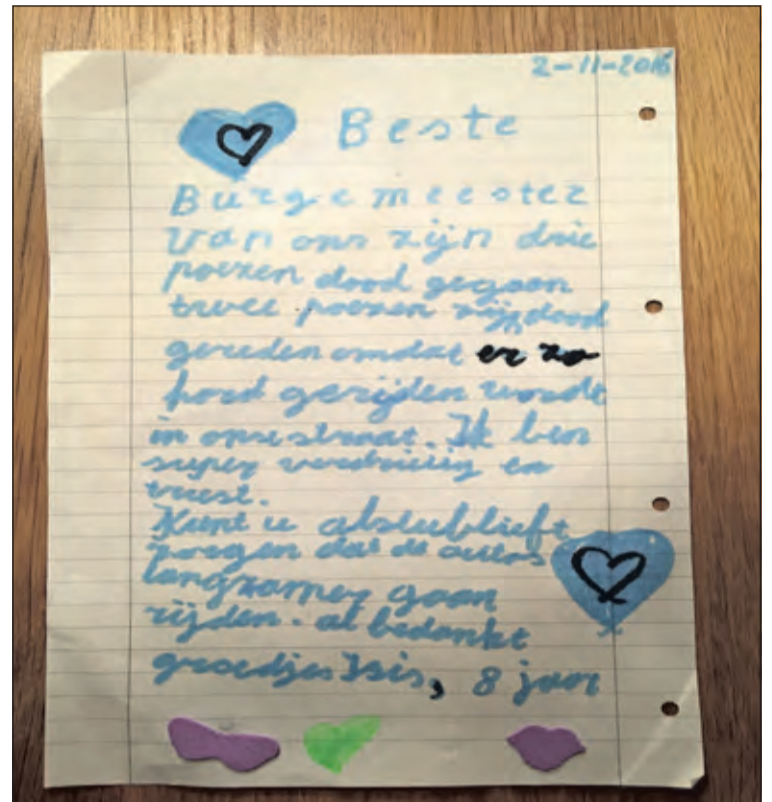 2-11-2016
Beste
Burgemeester
van ons zijn drie
poezen dood gegaan
twee poezen zijn dood
gereden omdat er zo
hard gerijden wordt
in onse straat. Ik ben
super verdrietig en
triest.
Kunt u alsublieft
zorgen dat de auto's
langzamer gaan
rijden. al bedankt
groedjes Isis, 8 jaar